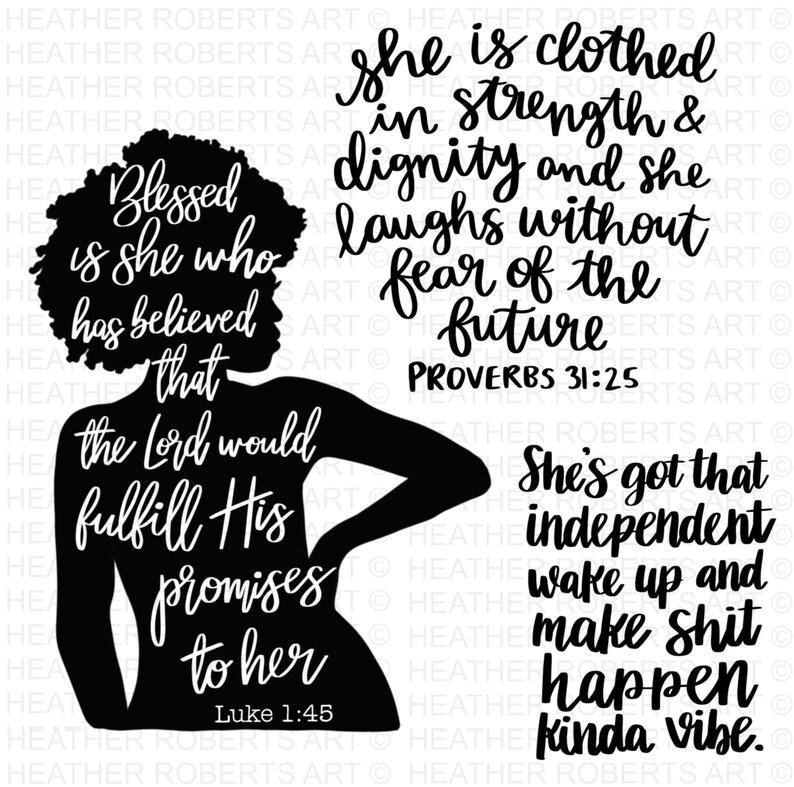 HEATHER ROBERTS ART ©
Blessed
is she who
has believed
that
the Lord would
fulfill His
promises
to her
Luke 1:45
she is clothed
in strength &
dignity and she
laughs without
fear of the
future
PROVERBS 31:25
She's got that
independent
wake up and
make shit
happen
kinda vibe.